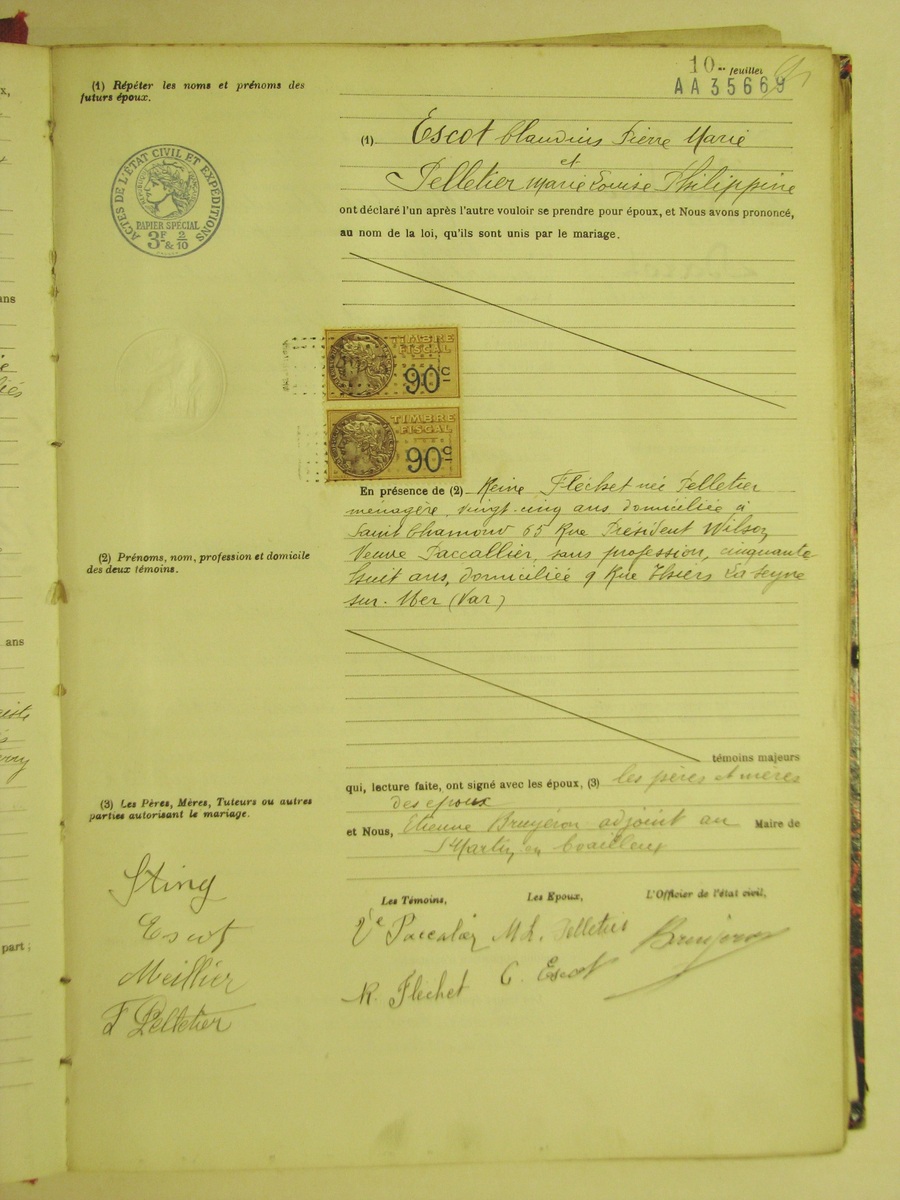 10 feuillet
AA 35669
(1) Répéter les noms et prénoms des
futurs époux.
(1) Escot Claudius Pierre Marie
et
Pelletier Marie Louise Philippine
ont déclaré l'un après l'autre vouloir se prendre pour époux, et Nous avons prononcé,
au nom de la loi, qu'ils sont unis par le mariage.
ACTES DE L'ÉTAT CIVIL ET EXPÉDITIONS
PAPIER SPÉCIAL
3F & 2/10
TIMBRE
FISCAL
90c
TIMBRE
FISCAL
90c
En présence de (2) Reine Fléchet née Pelletier
ménagère, vingt-cinq ans domiciliée à
Saint Chamond 65 Rue Président Wilson,
Veuve Paccallier, sans profession, cinquante
huit ans, domiciliée 9 Rue Thiers La Seyne
sur-Mer (Var)
(2) Prénoms, nom, profession et domicile
des deux témoins.
témoins majeurs
qui, lecture faite, ont signé avec les époux, (3) les pères et mères
des époux
et Nous, Etienne Bruyéron adjoint au Maire de
St Martin en Coailleux
(3) Les Pères, Mères, Tuteurs ou autres
parties autorisant le mariage.
Les Témoins, Les Epoux, L'Officier de l'état civil,
Escot
Meillier
F Pelletier
Vve Paccalier M L. Pelletier Bruyeron
R. Flechet C. Escot
ans
ans
part ;